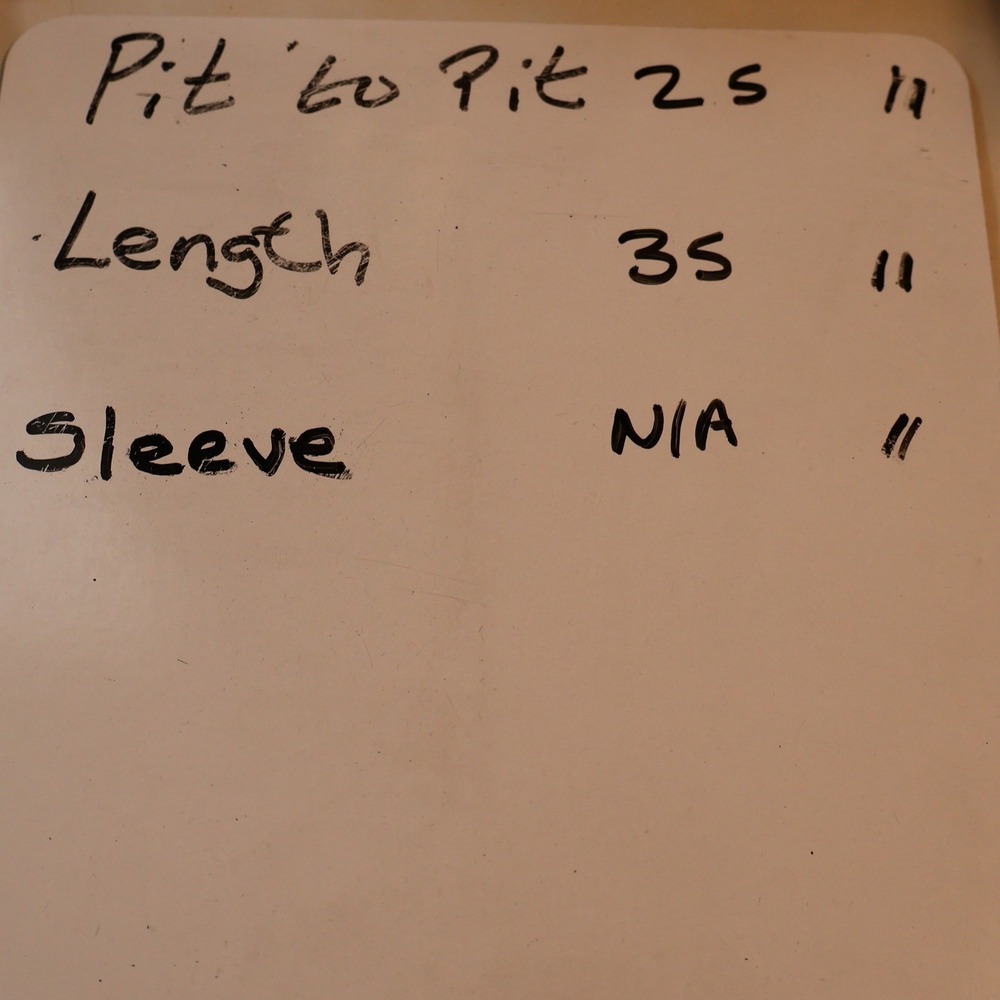 Pit to Pit 25 "
Length 35 "
Sleeve N/A "